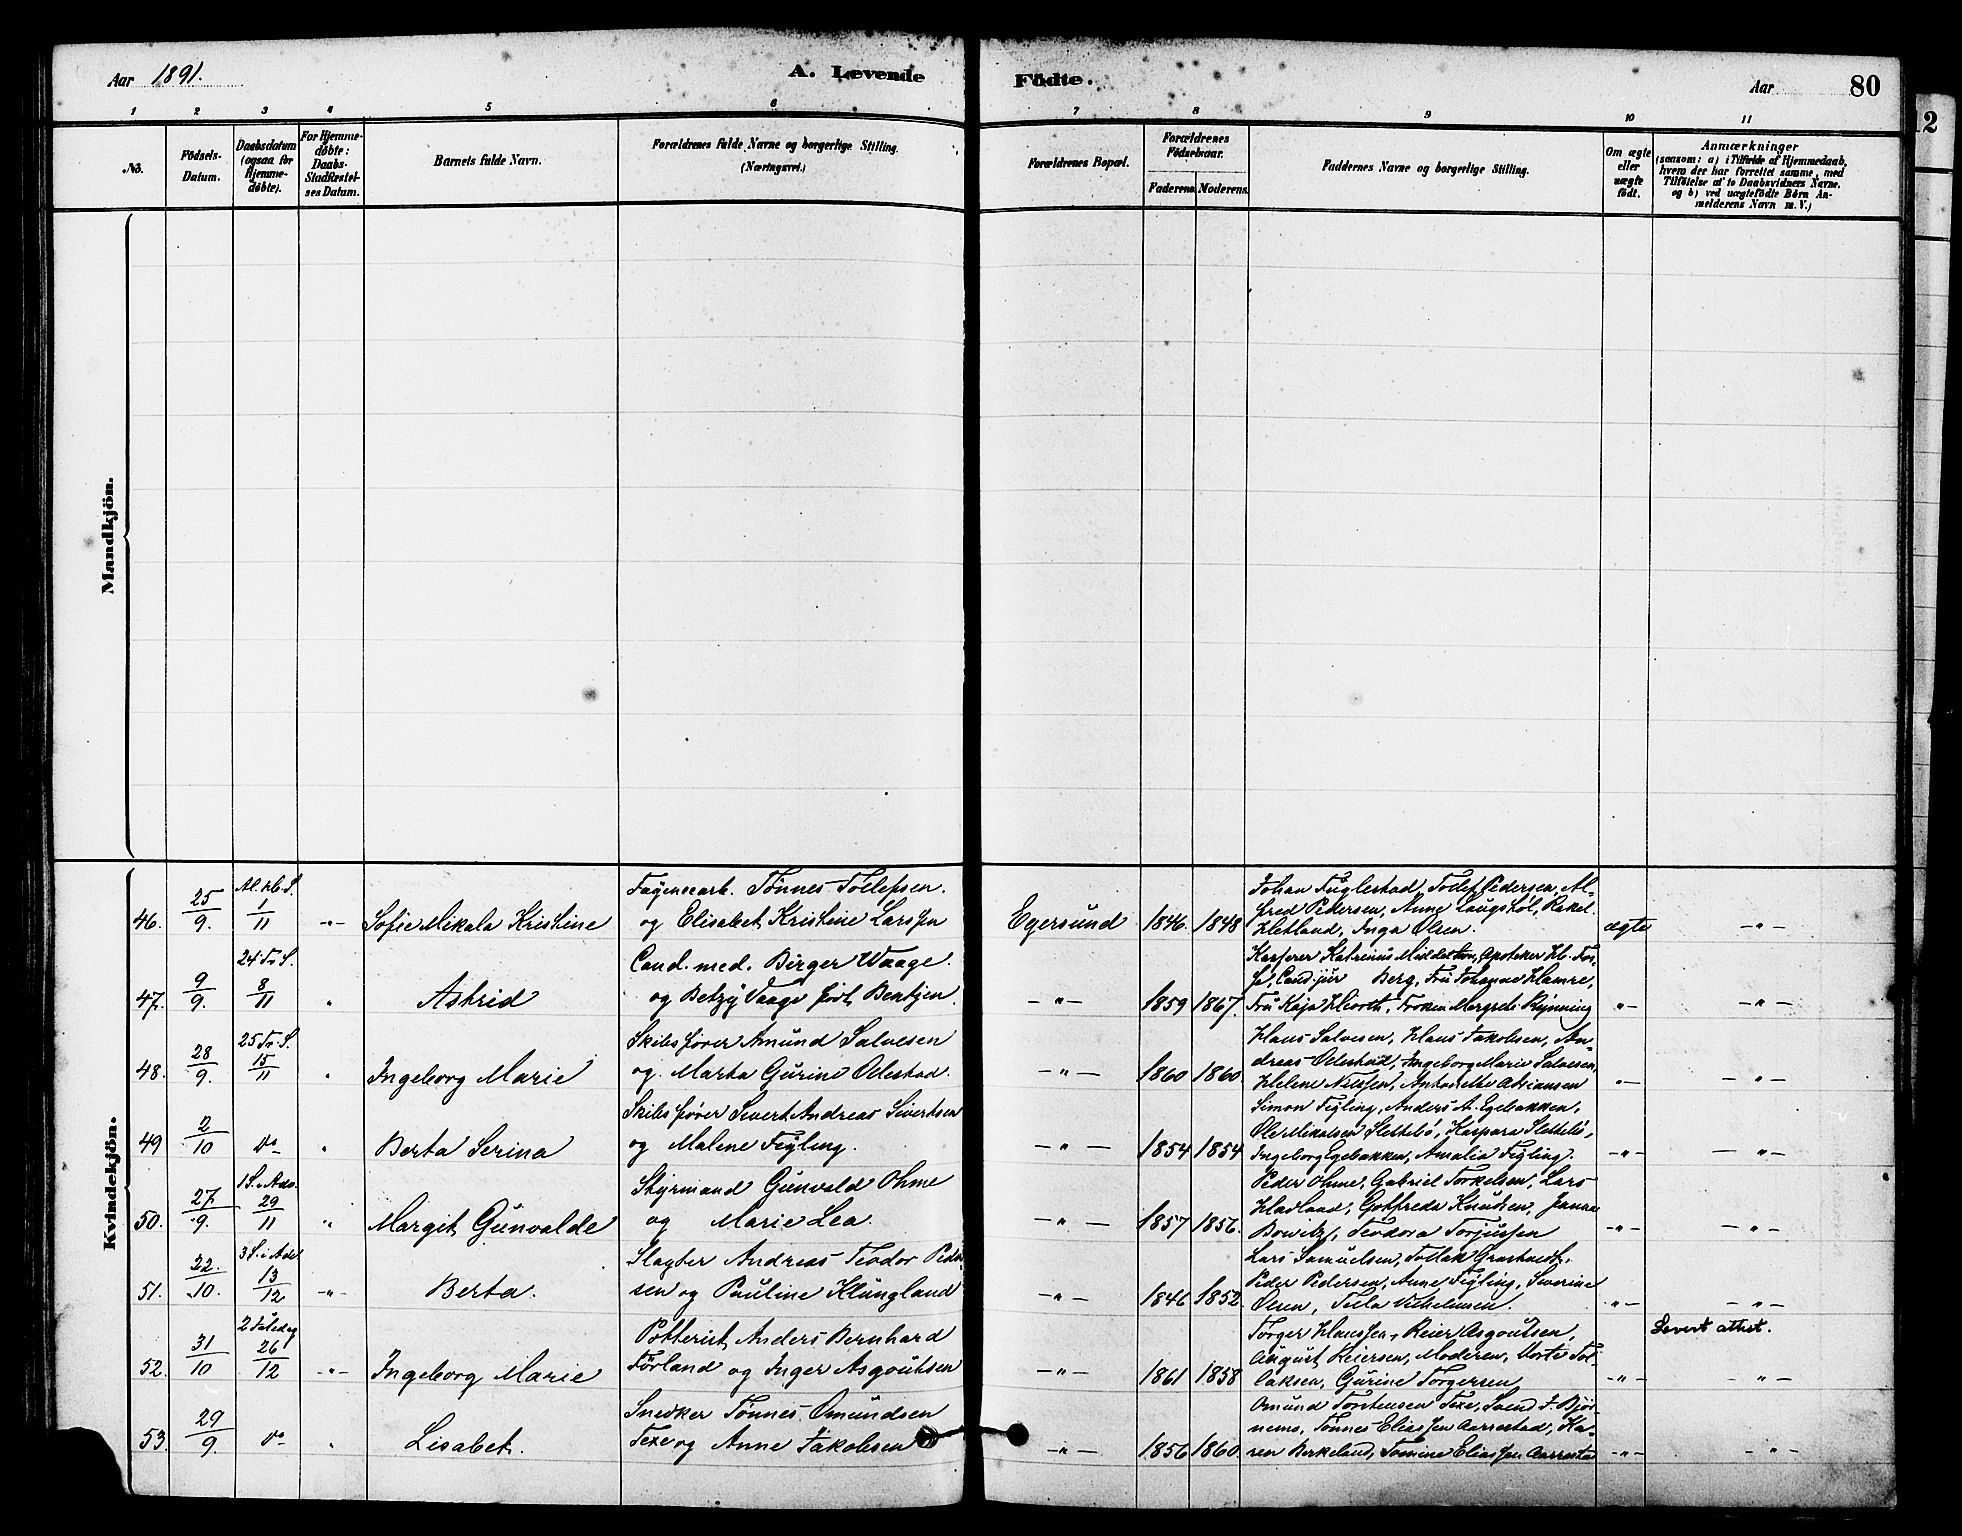 Aar 1891.
A. Levende
Födte.
Aar
80
12
1 2 3 4 5 6 7 8 9 10 11
No.
Födsels-
Datum.
Daabsdatum
(ogsaa for
Hjemme-
döbte).
For Hjemme-
döbte:
Daabs-
StadRestel-
ses Datum.
Barnets fulde Navn.
Forældrenes fulde Navne og borgerlige Stilling.
(Næringsvei.)
Forældrenes Bopæl.
Forældrenes
Födselsaar.
Faderens. Moderens.
Faddernes Navne og borgerlige Stilling.
Om ægte
eller
uægte
födt.
Anmærkninger
(saasom: a) i Tilfælde af Hjemmedaab,
hvem der har forrettet samme, med
Tilföielse af to Daabsvidners Navne.
og b) ved uægtefödte Börn An-
melderens Navn m. V.)
Mandkjön.
Kvindekjön.
46. 25/9. Al. Hb. S. 1/11 -"- Sofie Mikala Kristine
Fayencearb. Tönnes Tollefsen.
og Elisabet Kristine Larssen
Egersund 1846. 1848
Johan Fuglestad, Todef Pedersen, Al-
fred Pedersen, Anne Laugshol, Rakel
Hetland, Inga Olsen.
ægte -"-
47. 9/9. 24 Tr. S. 8/11 " Astrid
Cand. med. Birger Waage.
og Betzy Vaage född Bentzen.
-"- 1859 1867.
Kasserer Katrinus Middelthon, Apoteker
Cand. jur Berg, Fru Johanne Hamre,
Fru Kaja Hiorth, Fröken Margrete Rynning
-"- -"-
48. 28/9. 25 Tr. S. 15/11 " Ingeborg Marie
Skibsförer Amund Salvesen
og Marta Gurine Odestad.
-"- 1860 1860.
Hans Salvesen, Hans Jakobsen, An-
dreas Odestad, Ingeborg Marie Salvesen,
Helene Nilssen, Antonette Adriansen
"- -"-
49 2/10 do " Berta Serina
Skibsförer Sivert Andreas Sivertsen
og Malene Feyling.
-"- 1854 1854
Simon Feyling, Anders A. Egebakken,
Ole Mikalsen Slettebö, Kaspara Slettebö,
Ingeborg Egebakken, Amalia Feyling.
-"- -"-
50. 27/9. 1 S. i Adv. 29/11 " Margit Gunvalde
Styrmand Gunvald Ohme
og Marie Lea.
-"- 1857 1856.
Peder Ohme, Gabriel Torkelsen, Lars
Hadland, Gotfreda Knudsen, Janna
Bowitz, Teodora Torjussen
-"- -"-
51. 22./10. 3 S. i Adv 13/12 -"- Berta.
Slagter Andreas Teodor Peder-
sen og Pauline Klungland
-"- 1846 1852.
Lars Samuelsen, Tollak Grastveit,
Peder Pedersen, Anne Feyling, Severine
Olsen, Vilhelmsen.
"- -"-
52. 31/10 2 Juledag 26/12 -"- Ingeborg Marie
Potterist Anders Bernhard
Förland og Inger Asgoutsen
-"- 1861 1858
Torger Hanssen, Reier Asgoutsen,
August Reiersen, Moderen, Dorte Tol-
laksen, Gurine Torgersen
-"- Levert attest.
-"-
53. 29/9. do " Lisabet.
Snedker Tönnes Omundsen
Texe og Anne Jakobsen
-"- 1856 1860.
Omund Torstensen Texe, Svend T. Björ-
nemo, Tönnes Eliassen Aarrestad, Ka-
ren Birkeland, Tomine Eliassen Aarrestad
-"- -"-